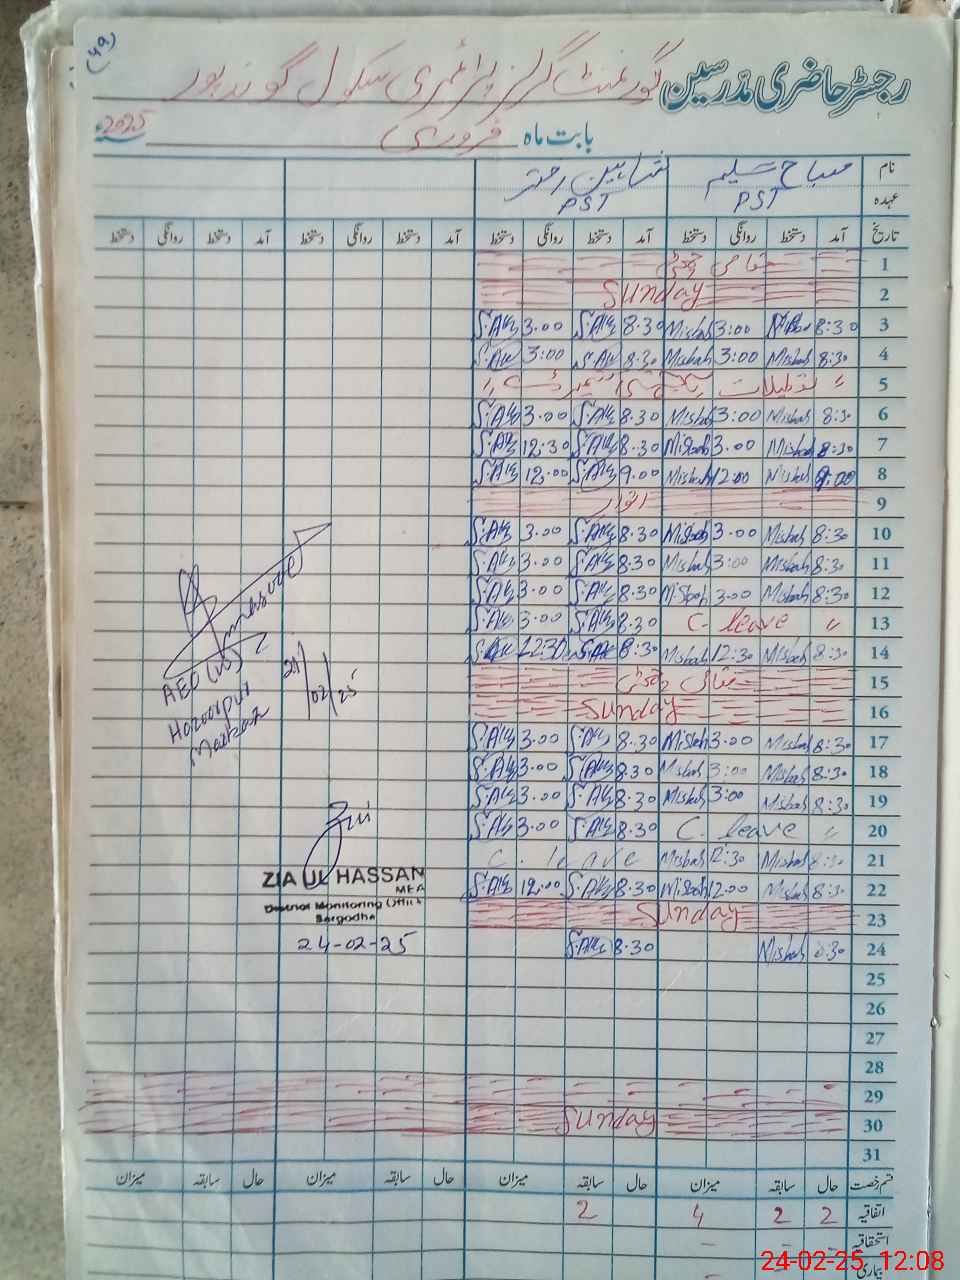 (49)
رجسٹر حاضری مدرسین گورنمنٹ گرلز پرائمری سکول گوندپور
بابت ماہ فروری 2025ء
نام مصباح سلیم شاہین اختر
عہدہ PST PST
تاریخ آمد دستخط روانگی دستخط آمد دستخط روانگی دستخط آمد دستخط روانگی دستخط آمد دستخط روانگی دستخط
1 مقامی چھٹی
2 Sunday
3 8:30 Misbah 3:00 Misbah 8.30 3.00
4 8:30 Misbah 3:00 Misbah 8.30 3:00
5 " تعطیلات یکجہتی کشمیر ڈے "
6 8:30 Misbah 3:00 Misbah 8.30 3.00
7 8:30 Misbah 3.00 Misbah 8.30 12:30
8 9:00 Misbah 12.00 Misbah 9.00 12.00
9 اتوار
10 8:30 Misbah 3.00 Misbah 8.30 3.00
11 8:30 Misbah 3:00 Misbah 8.30 3.00
12 8:30 Misbah 3.00 Misbah 8.30 3.00
13 C. leave " 8.30 3.00
14 8:30 Misbah 12:30 Misbah 8:30 12:30
15 مقامی چھٹی
16 Sunday
17 8:30 Misbah 3.00 Misbah 8.30 3.00
18 8:30 Misbah 3:00 Misbah 8.30 3.00
19 8:30 Misbah 3:00 Misbah 8.30 3.00
20 C. leave " 8.30 3.00
21 8:30 Misbah 12:30 Misbah C. leave
22 8:30 Misbah 12.00 Misbah 8.30 12.00
23 Sunday
24 8:30 Misbah 8.30
25
26
27
28
29
30 Sunday
31
AEO (W)
Markaz
24/02/25
ZIA UL HASSAN
MEA
District Monitoring Office
Sargodha
24-02-25
قسم رخصت حال سابقہ میزان حال سابقہ میزان حال سابقہ میزان حال سابقہ میزان
اتفاقیہ 2 2 4 2
استحقاقیہ - -
بیماری
24-02-25 12:08